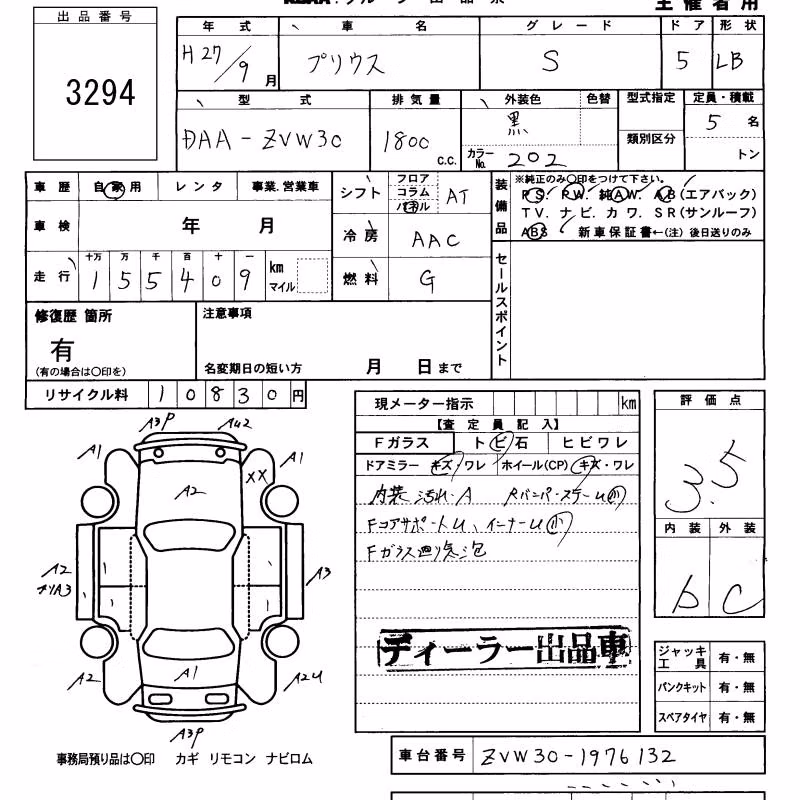 主催者用
出品番号
3294
年式 車名 グレード ドア 形状
H27/9月 プリウス S 5 LB
型式 排気量 外装色 色替 型式指定 定員・積載
DAA-ZVW30 1800 c.c. 黒 類別区分 5名
カラーNo. 202 トン
車歴 自家用 レンタ 事業.営業車 シフト フロア コラム パネル AT
装備品 ※純正のみ○印をつけて下さい。
PS. PW. 純AW. AB(エアバック)
TV. ナビ. カワ. SR(サンルーフ)
ABS 新車保証書←(注) 後日送りのみ
車検 年 月 冷房 AAC
走行 十万 万 千 百 十 一 km マイル 燃料 G
1 5 5 4 0 9
セールスポイント
修復歴 箇所 注意事項
有
(有の場合は○印を) 名変期日の短い方 月 日まで
リサイクル料 10830円
現メーター指示 km
評価点
3.5
【査定員記入】
Fガラス トビ石 ヒビワレ
ドアミラー キズ・ワレ ホイール(CP) キズ・ワレ
内装汚れ・A RバンパーステーU小
FコアサポートU、インナーU小
Fガラス廻り気泡
内装 外装
b C
A3P A42
A1 XX A1
A2
A2 A3
A1
A2 A2U
A3P
ディーラー出品車
ジャッキ工具 有・無
パンクキット 有・無
スペアタイヤ 有・無
事務局預り品は○印 カギ リモコン ナビロム
車台番号 ZVW30-1976132